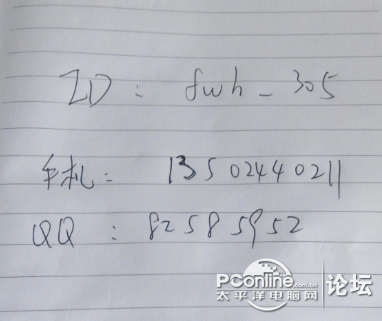 ID : fwh - 305
手机: 13502440211
QQ : 82585952
PConline 论坛
太平洋电脑网